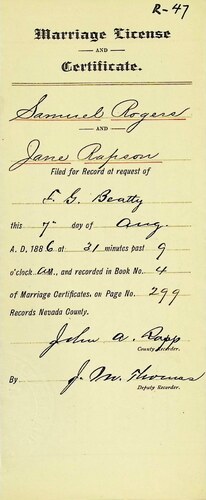 R-47
Marriage License
AND
Certificate.
Samuel Rogers
AND
Jane Rapson
Filed for Record at request of
F. G. Beatty
this 7" day of Aug.
A. D. 1886 at 31 minutes past 9
o'clock A M., and recorded in Book No. 4
of Marriage Certificates, on Page No. 299
Records Nevada County.
John A. Rapp
County Recorder.
By J. M. Thomas
Deputy Recorder.